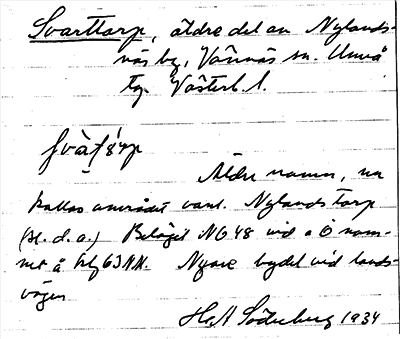 Svarttorp, äldre del av Nylands-
näs by, Vännäs sn. Umeå
tg. Västerb. l.
Äldre namn, nu
kallas området vanl. Nylands torp
(se. d. a.) Beläget NO 48 vid a Ö nam-
net å blg 63 NN. Nyare bydel vid lands-
vägen
H. Söderberg 1934